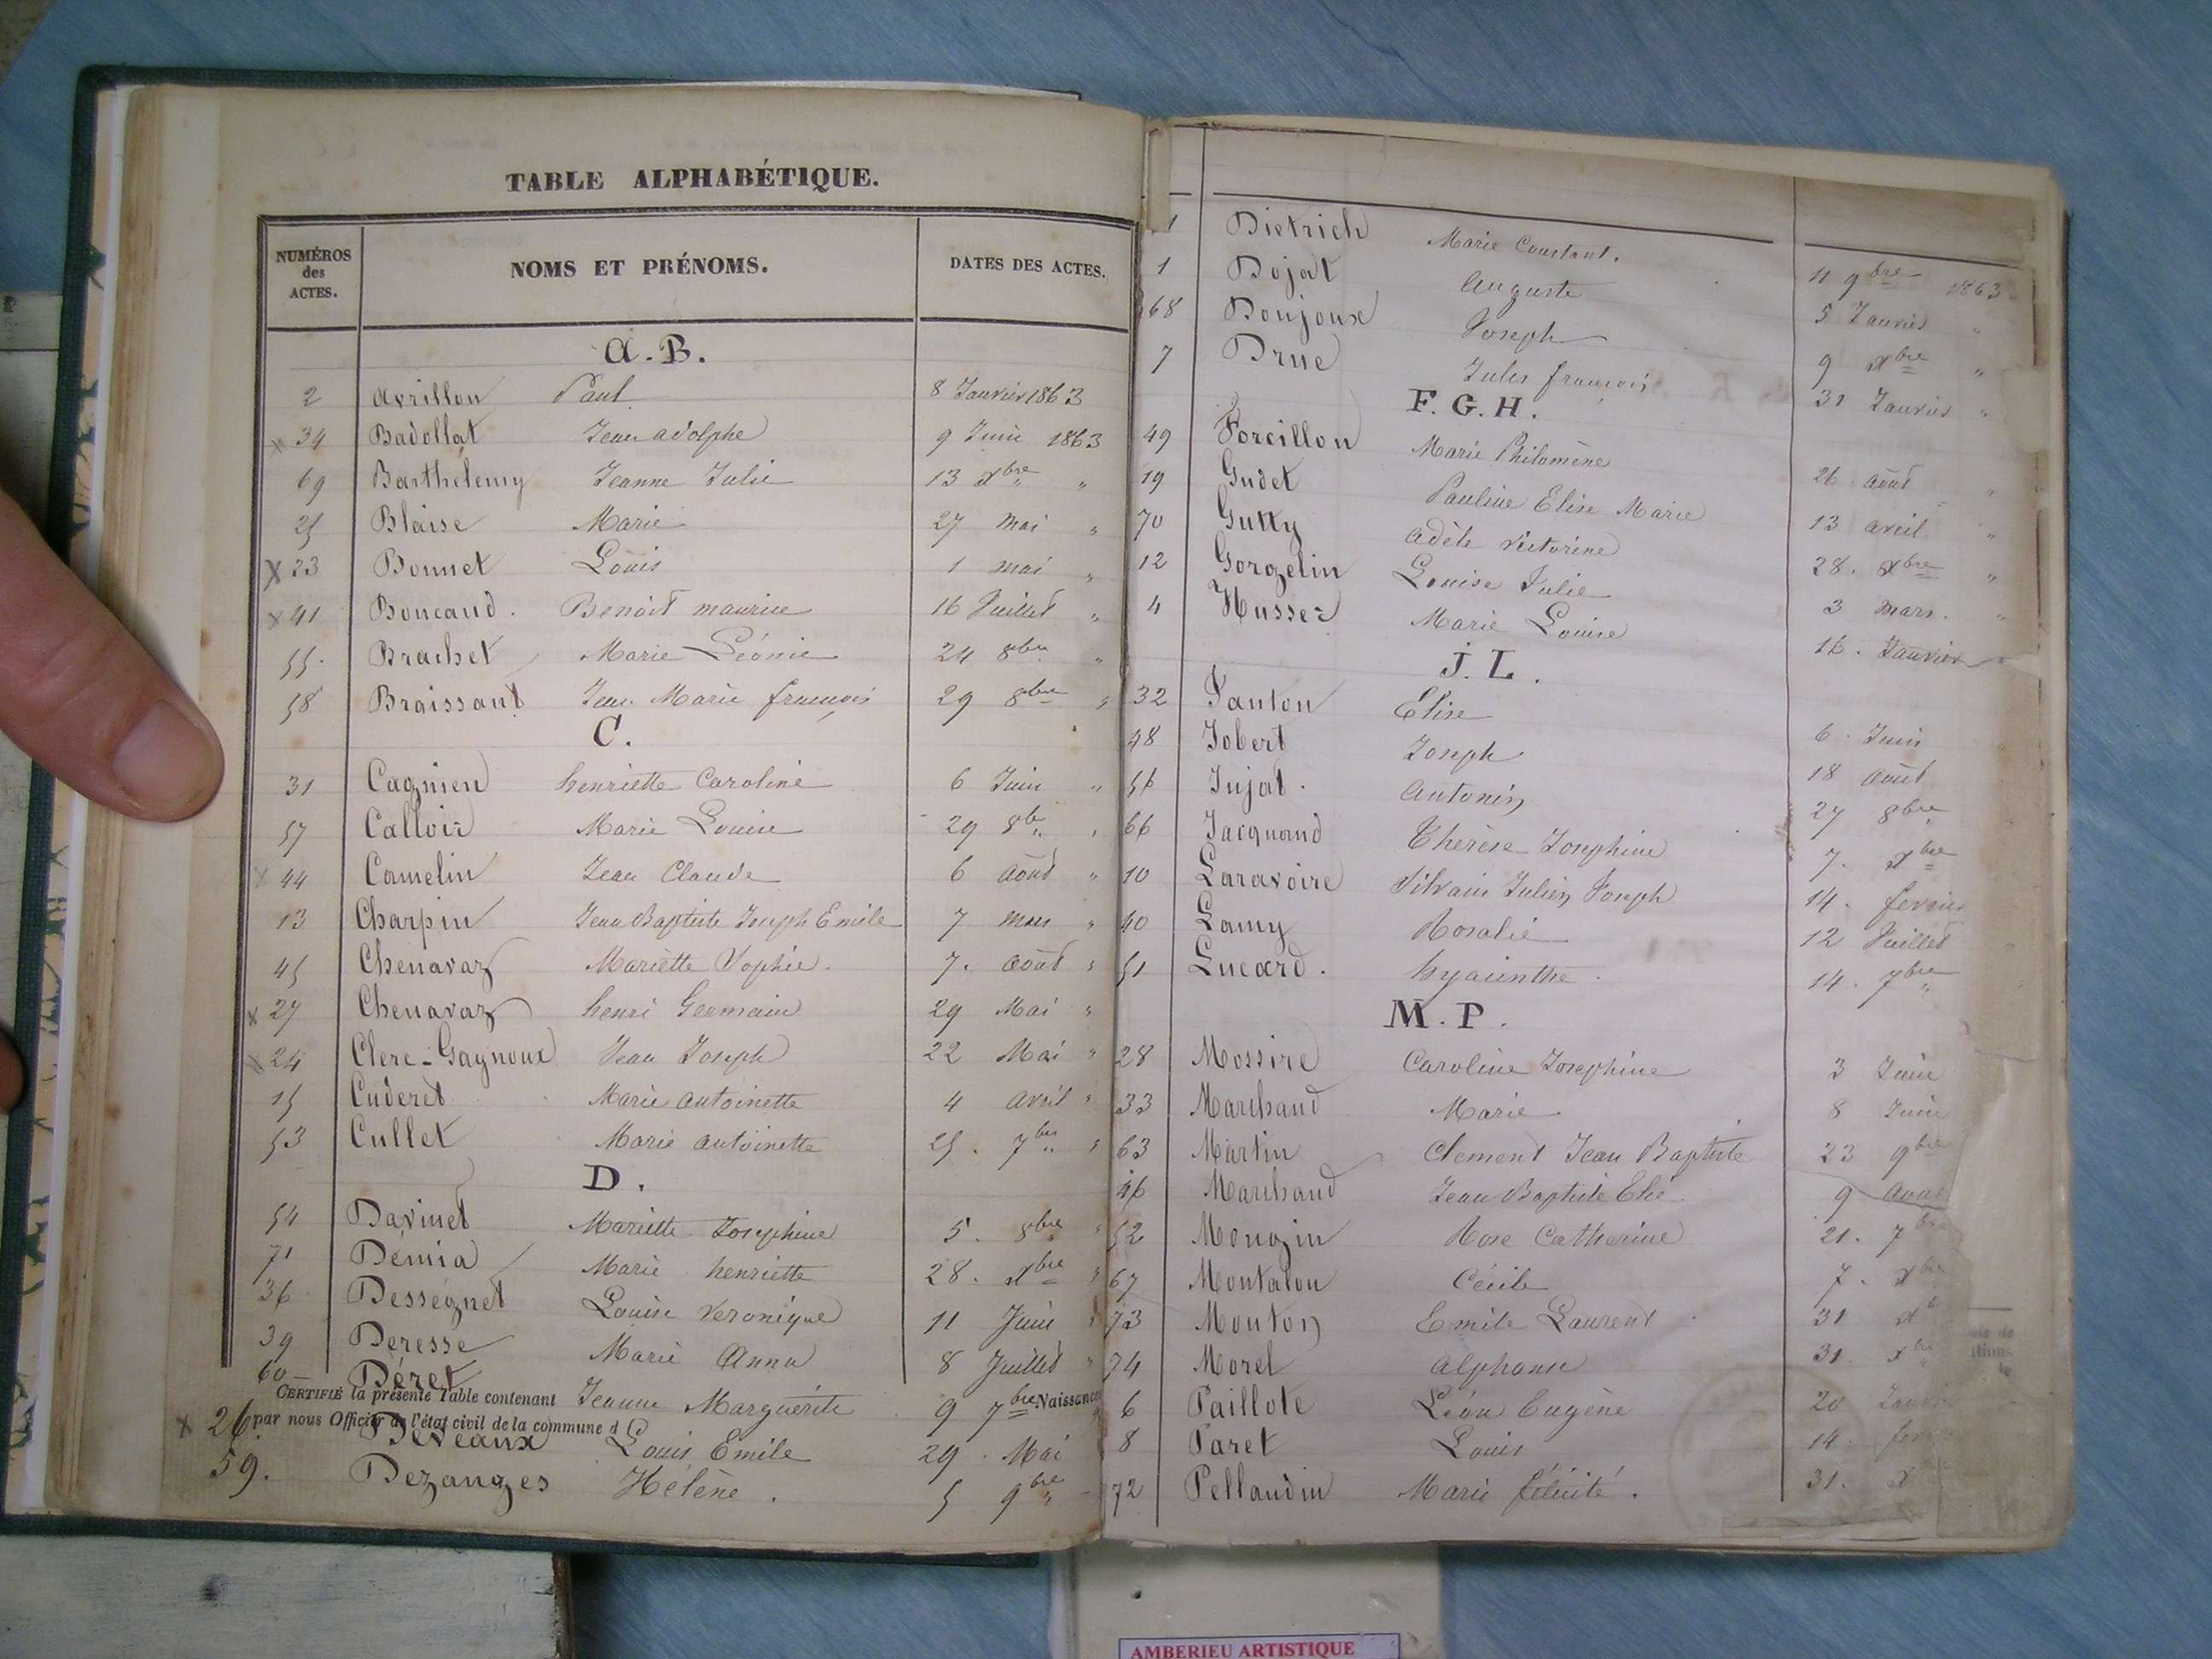 TABLE ALPHABÉTIQUE.
NUMÉROS des ACTES.
NOMS ET PRÉNOMS.
DATES DES ACTES.
A.B.
2 Avrillon Paul 8 Janvier 1863
x 34 Badollat Jean adolphe 9 Juin 1863
69 Barthélemy Jeanne Julie 13 Xbre "
25 Blaise Marie 27 Mai "
x 23 Bonnet Louis 1 mai "
x 41 Boucaud. Benoit maurice 16 Juillet "
55. Brachet Marie Léonie 24 8bre "
58 Braissant Jean Marie françois 29 8bre "
C.
31 Cagnien henriette Caroline 6 Juin "
57 Calloir Marie Louise 29 8bre "
x 44 Camelin Jean Claude 6 Août "
13 Charpin Jean Baptiste Joseph Emile 7 mars "
45 Chenavaz Mariette Sophie. 7. août "
x 27 Chenavaz henri Germain 29 Mai "
x 24 Clerc-Gagnoux Jean Joseph 22 Mai "
15 Cuderet Marie antoinette 4 avril "
53 Cullet Marie antoinette 25. 7bre "
D.
54 Davinet Mariette Josephine 5. 8bre "
71 Démia Marie henriette 28. Xbre "
36 Dességnet Louise Veronique 11 Juin "
39 Deresse Marie Anna 8 Juillet "
60 Déret Jeanne Marguerite 9 7bre
CERTIFIÉ la présente Table contenant Naissances
par nous Officier de l'état civil de la commune d
x 26. Deveaux Louis Emile 29. Mai
59. Dezanges Hélène. 5 9bre "
1 Dietrich Marie Constant. 11 9bre 1863
1 Dojat Auguste 5 Janvier "
68 Donjoux Joseph 9 Xbre "
7 Drue Jules françois 31 Janvier "
F.G.H.
49 Forcillon Marie Philomène 26 août "
19 Gudet Pauline Elise Marie 13 avril "
70 Gutty Adèle victorine 28. Xbre "
12 Gorgelin Louise Julie 3 mars. "
4 Husser Marie Louise 16. Janvier "
J.L.
32 Janton Elise 6. Juin
48 Jobert Joseph 18 août
56 Jujat. Antonin 27 8bre
66 Jacquand Thérèse Josephine 7. Xbre
10 Laravoire Silvain Julien Joseph 14. fevrier
40 Lamy Rosalie 12 Juillet
51 Lucard. hyacinthe. 14. 7bre
M.P.
28 Mossire Caroline Josephine 3 Juin
33 Marchand Marie 8 Juin
63 Martin Clement Jean Baptiste 23 9bre
46 Marchand Jean Baptiste Elie. 9 Aout
52 Mongin Rose Catherine 21. 7bre
67 Montalon Cécile 7. Xbre
73 Mouton Emile Laurent 31 Xbre
74 Morel Alphonse 31. Xbre
6 Paillole Léon Eugène 20 Janvier
8 Paret Louis 14. fevr
72 Pellaudin Marie félicité. 31. X
AMBERIEU ARTISTIQUE